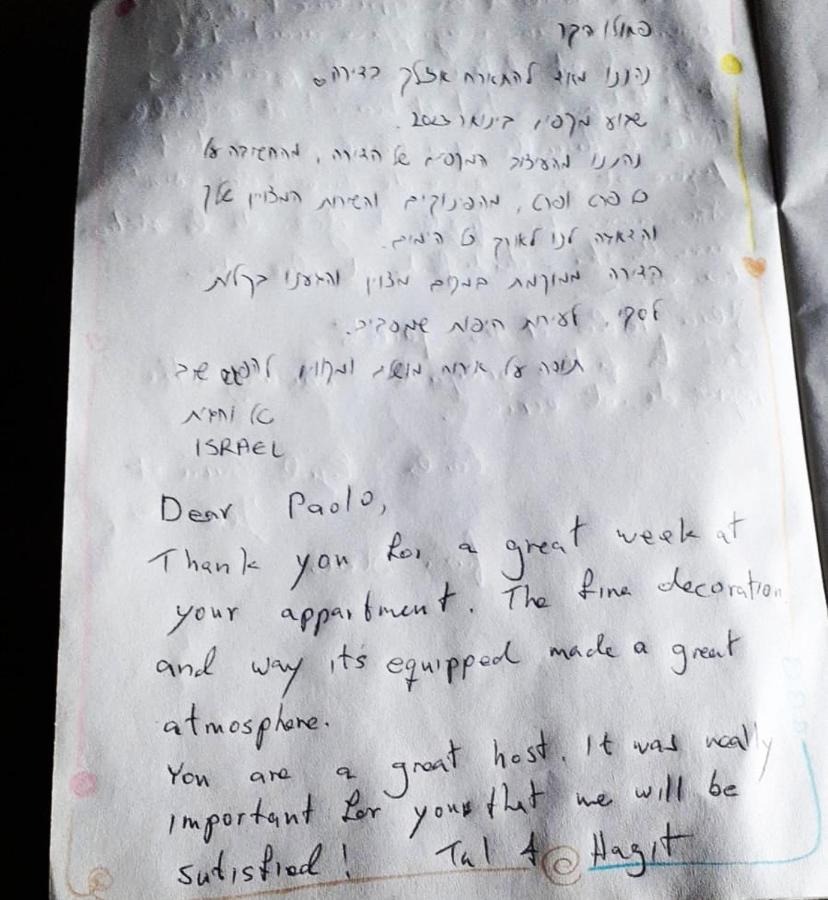 פאולו היקר
נהננו מאוד להתארח אצלך בדירה
שבוע מקסים, בינואר 2023.
נהננו מהעיצוב המקסים של הדירה, מהחשיבה על
כל פרט ופרט, מהפינוקים והשירות המצוין שלך
והדאגה לנו לאורך כל הימים.
הדירה ממוקמת במקום מצוין והגענו בקלות
לסקי, לעיירות היפות שמסביב.
תודה על אירוח מושלם ומקווים להפגש שוב
טל וחגית
ISRAEL
Dear Paolo,
Thank you for a great week at
your appartment. The fine decoration
and way it's equipped made a great
atmosphere.
You are a great host. It was really
important for you that we will be
sutisfied! Tal & Hagit